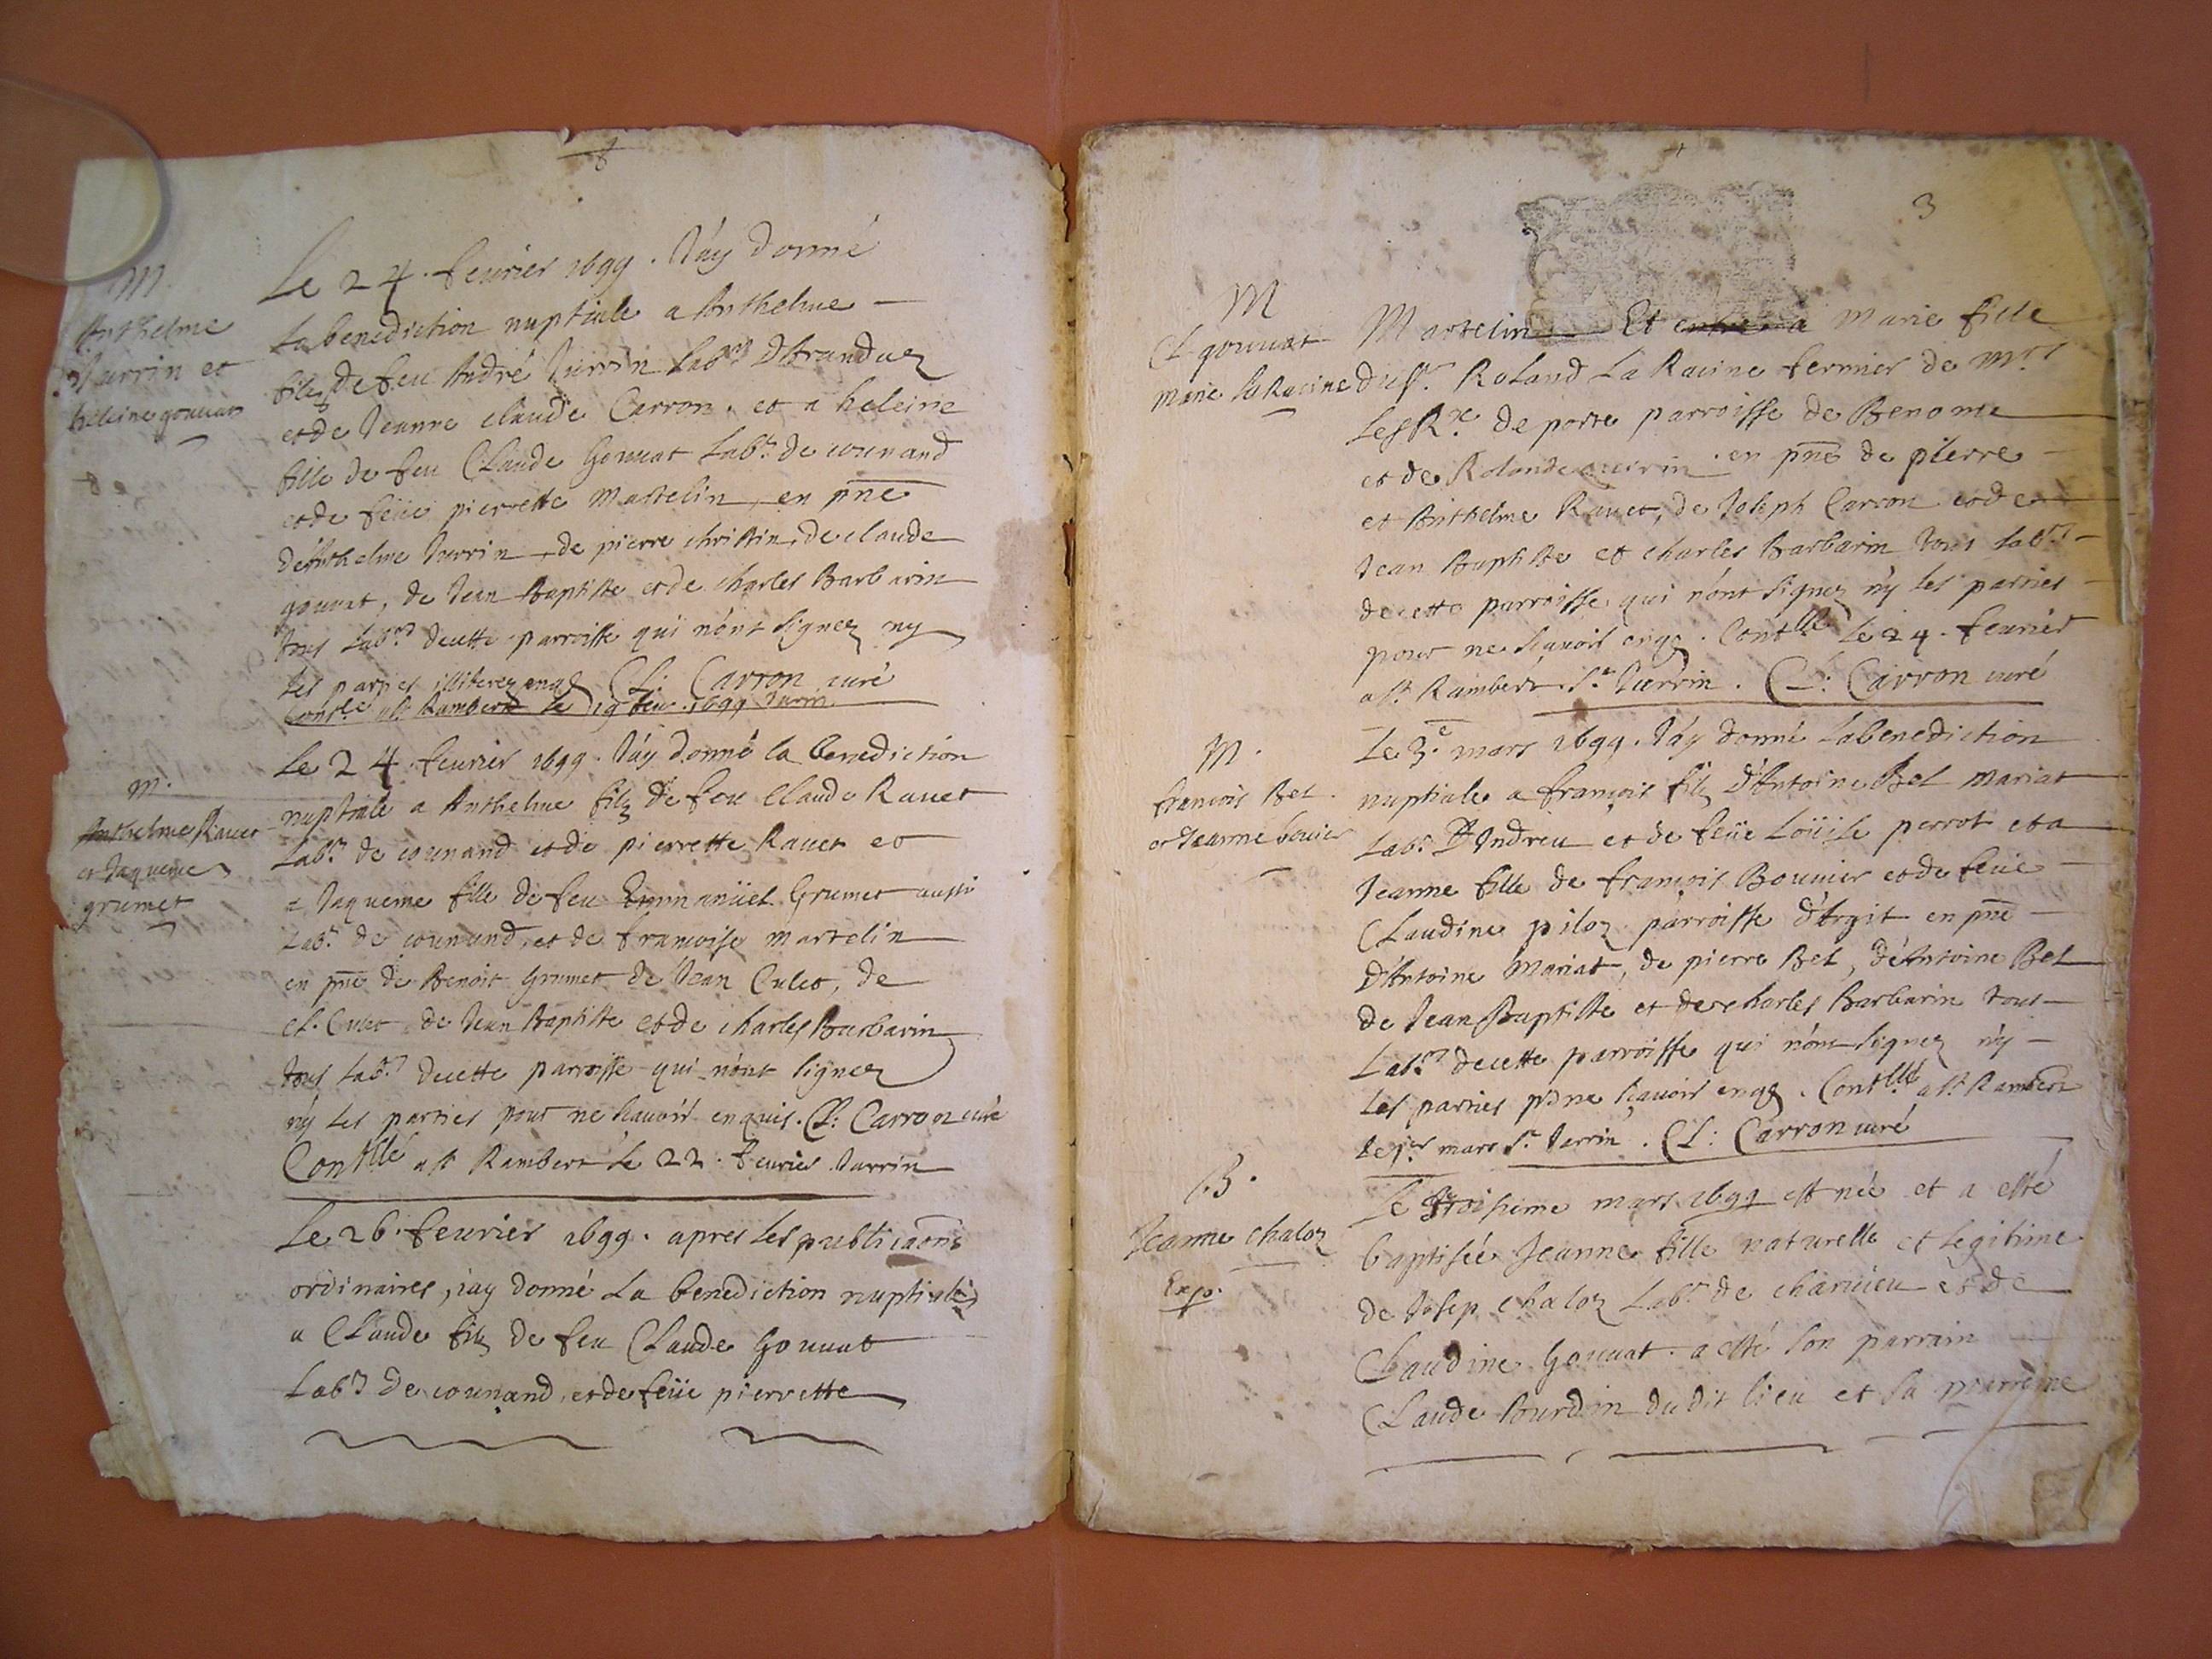 M.
Anthelme
Jurrin et
heleine gouuat
Le 24. feurier 1699. J'ay donné
la benediction nuptiale a Anthelme
filz de feu André Jurrin Lab.r D'Aranduz
et de Jeanne claude Carron. et a heleine
fille de feu Claude Gouuat Lab.r de counand
et de feüe pierrette Martelin, en pñce
d'Anthelme Jurrin, de pierre christin, de claude
gouuat, de Jean Baptiste et de charles Barbarin
tous Lab.rs decette parroisse qui n'ont signez ny
les parties illiterez enqz Cl: Carron curé
Contlle a st Rambert le 19 feu. 1699 Jurrin.
m.
Anthelme Rauet
et Jaqueme
grumet
Le 24. feurier 1699. J'ay donné la benediction
nuptiale a Anthelme filz de feu Claude Rauet
Lab.r de counand et de pierrette Rauet et
a Jaqueme fille de feu Emmanüel Grumet aussi
Lab.r de counand, et de francoise martelin
en pñce de Benoit Grumet de Jean Culet, de
cl. Cuet de Jean Baptiste et de charles Barbarin
tous Lab.rs decette parroisse qui n'ont signez
n'y les parties pour ne scauoir enquis. Cl: Carron curé
Contlle a st Rambert le 22. feurier Jurrin
Le 26. feurier 1699. apres les publicaõns
ordinaires, j'ay donné la benediction nuptiale
a Claude filz de feu Claude Gouuat
Lab.r de counand, et de feüe pierrette
3
M
Cl gouuat
Marie la Racine
Martelin Et entre a Marie fille
du sr. Roland La Racine fermier de Mrs
les Rx de porte parroisse de Benonce
et de Rolande guerin en pñce de pierre
et Anthelme Rauet, de Joseph Carron et de
Jean Baptiste et charles Barbarin tous Lab.rs
decette parroisse qui n'ont signez n'y les parties
pour ne scauoir enqz. Contlle le 24. feurier
a st. Rambert. Sr. Jurrin. Cl: Carron curé
M.
francois Bel
et Jeanne bouier
Le 3.e mars 1699. J'ay donné la benediction
nuptiale a francois filz d'Antoine Bel Mariat
Lab.r D'Indrieu et de feüe Loüise perrot et a
Jeanne fille de francois Bouuier et de feüe
Claudine piloz parroisse d'Argit en pñce
d'Antoine Mariat, de pierre Bel, d'Antoine Bel
de Jean Baptiste et de charles Barbarin tous
Lab.rs decette parroisse qui n'ont signez n'y
les parties pr ne scauoir enqz. Contlle a st Rambert
le 1er mars Sr. Jurrin. Cl: Carron curé
B.
Jeanne chaloz
Exp.
Le troisieme mars 1699 est née et a esté
baptisée Jeanne fille naturelle et legitime
de Josep chaloz Lab.r de charuieu et de
Claudine Gouuat. a esté son parrain
Claude Bourdin dudit lieu et sa marreine